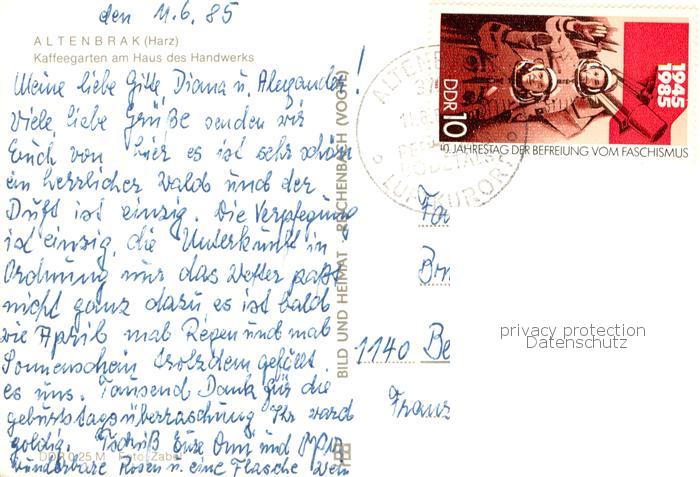 den 11.6.85
ALTENBRAK (Harz)
Kaffeegarten am Haus des Handwerks
Meine liebe Gitte, Diana u. Alexander!
Viele liebe Grüße senden wir
Euch von hier es ist sehr schön
ein herrlicher Wald und der
Duft ist einzig. Die Verpflegung
ist einzig, die Unterkunft in
Ordnung nur das Wetter paßt
nicht ganz dazu es ist bald
wie April mal Regen und mal
Sonnenschein trotzdem gefällt
es uns. Tausend Dank für die
geburtstagsüberraschung Ihr ward
goldig. Tschüß Eure Omi und
wunderbare Rosen u. eine Flasche Wein
DDR 0,25 M Foto: Zabel
BILD UND HEIMAT REICHENBACH (VOGTL)
ALTENB
11.6.
LUFTKURORT
DDR 10
1945
1985
40. JAHRESTAG DER BEFREIUNG VOM FASCHISMUS
Fa
1140 Be
Franz
privacy protection
Datenschutz